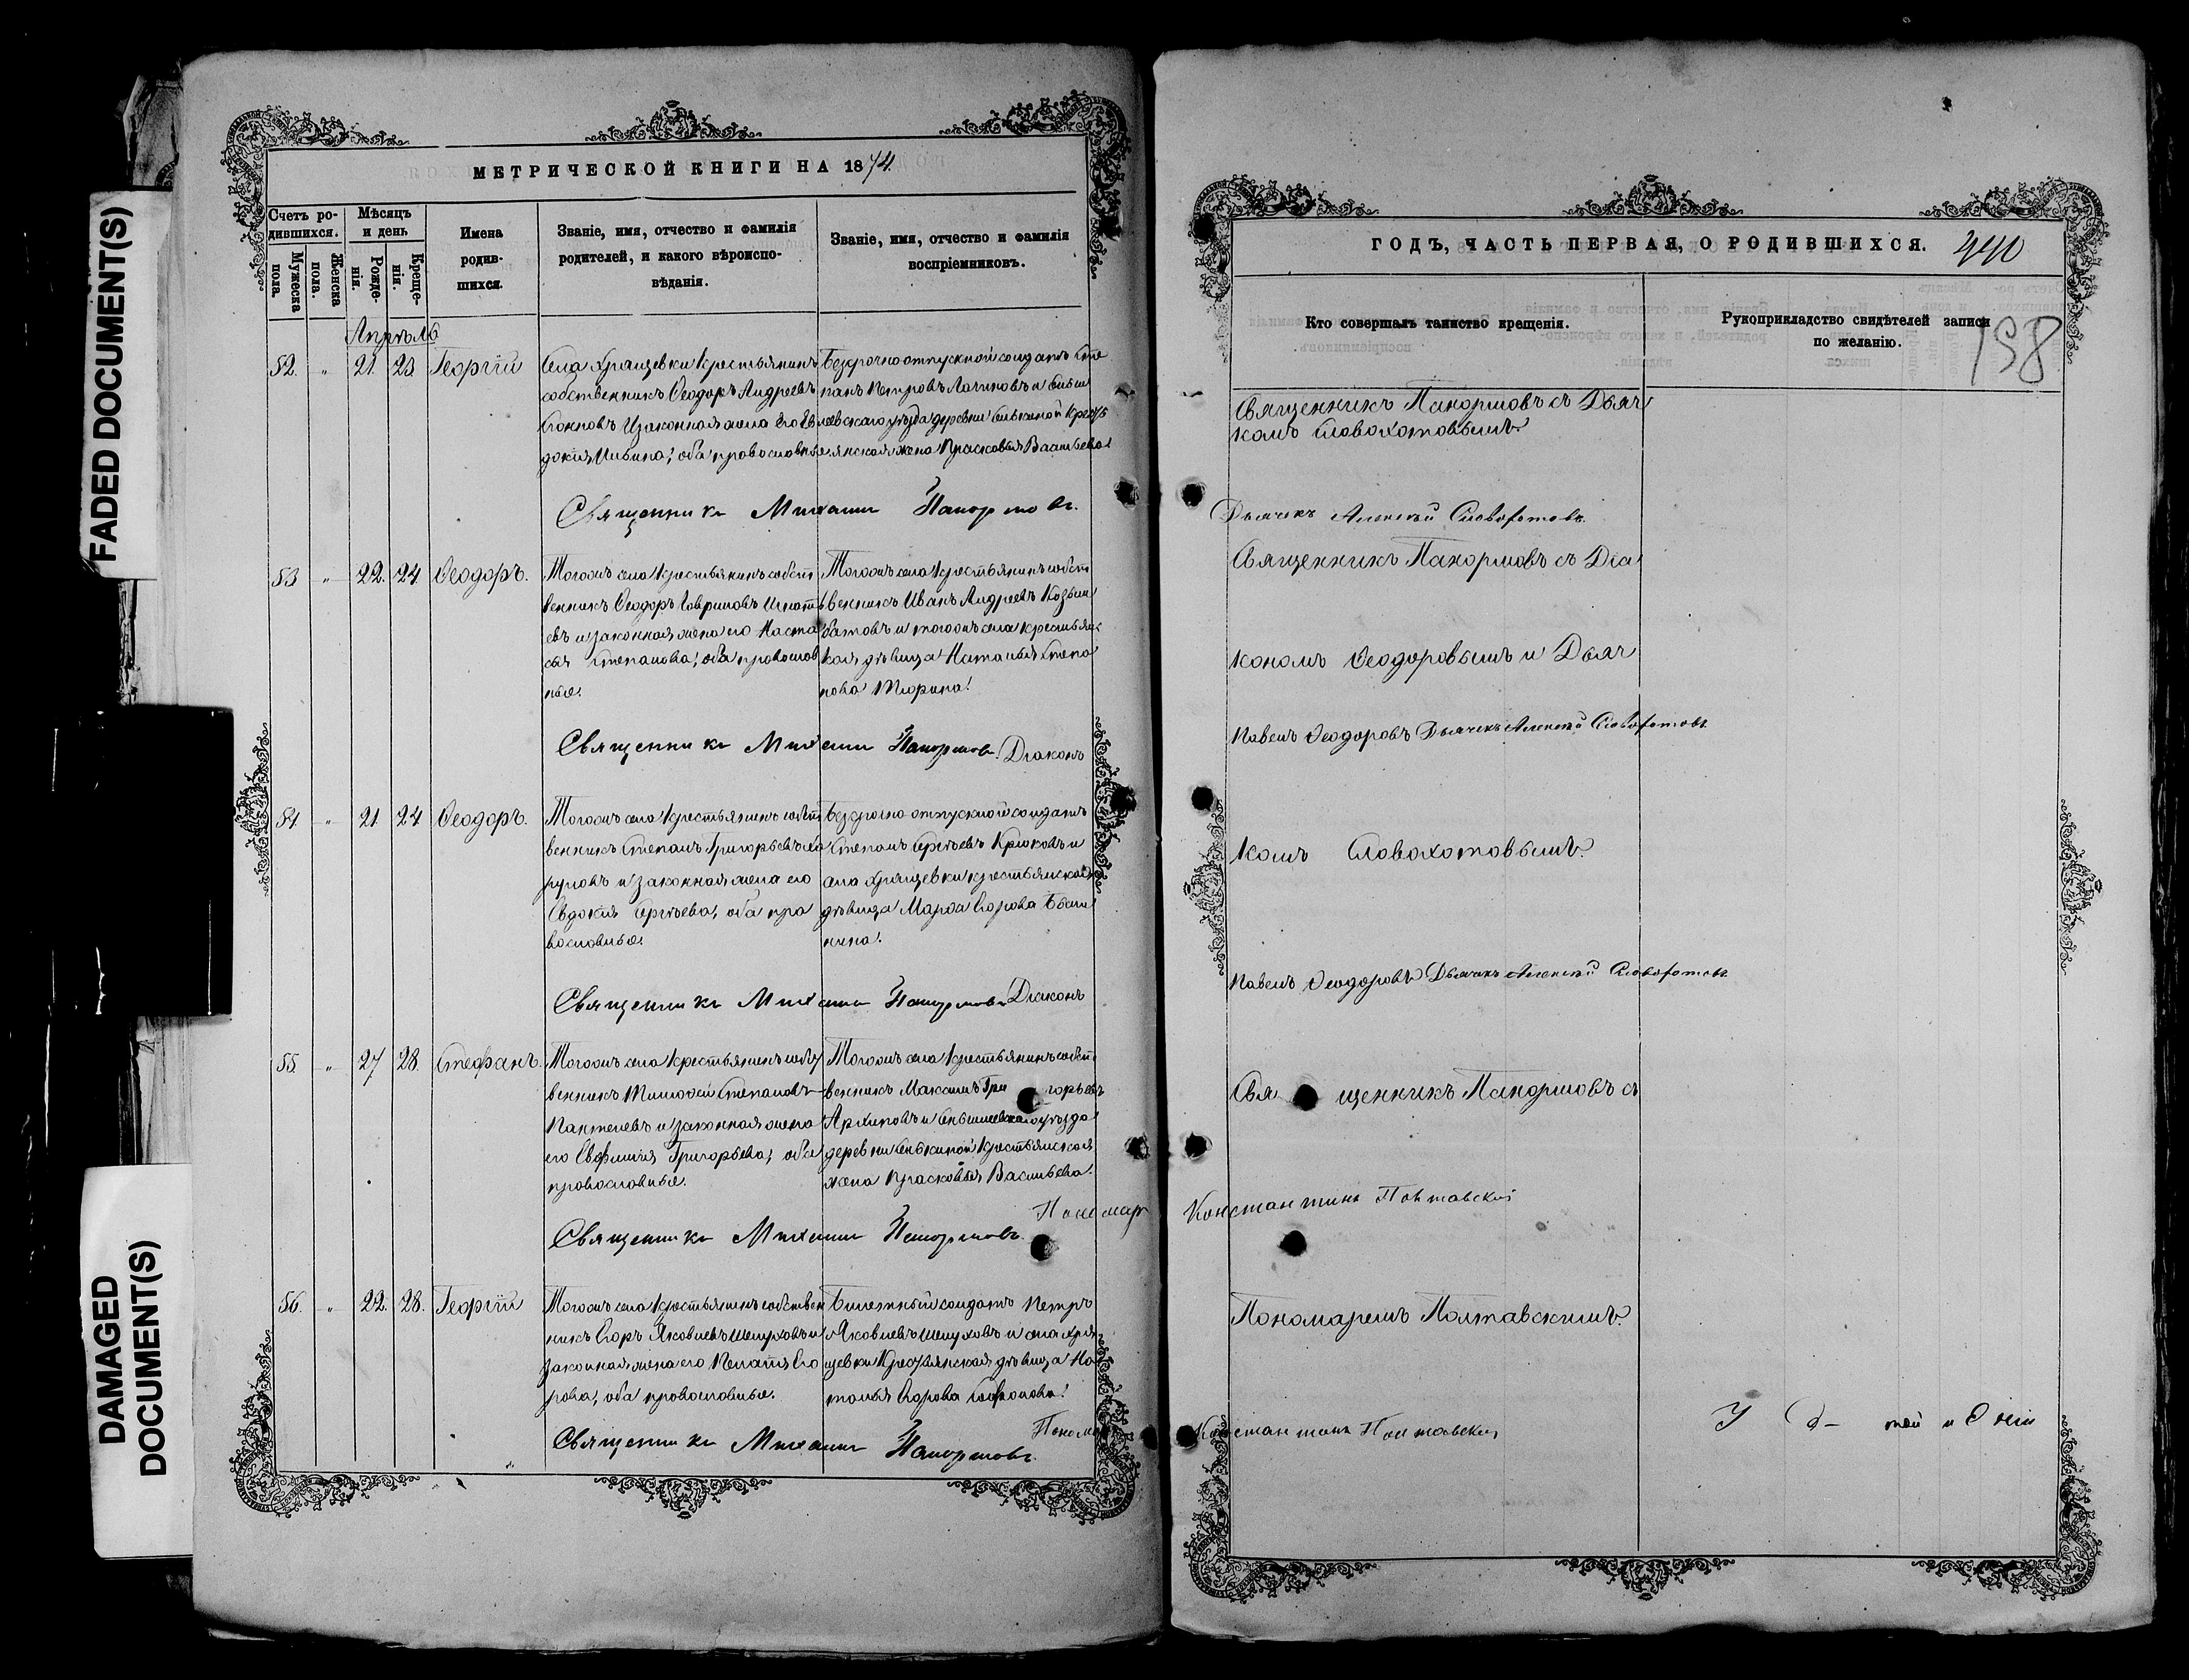 FADED DOCUMENT(S)
DAMAGED DOCUMENT(S)
МЕТРИЧЕСКОЙ КНИГИ НА 1874.
Счетъ ро-
дившихся.
Мужеска пола.
Женска пола.
Мѣсяцъ
и день
Рожде-
нія.
Креще-
нія.
Имена
родив-
шихся.
Званіе, имя, отчество и фамилія
родителей, и какого вѣроиспо-
вѣданія.
Званіе, имя, отчество и фамилія
воспріемниковъ.
Апрѣль
52. " 21. 23. Георгій
Села Хрящевки крестьянинъ
собственникъ Ѳеодоръ Андреевъ
и законная жена его Ев
докія Ильина; оба православные
Безсрочноотпускной солдатъ Сте
панъ Петровъ и
уѣзда деревни крестья
янская жена Прасковья Васильева
Священникъ Михаилъ Панормовъ.
53 " 22. 24 Ѳеодоръ.
Тогожъ села крестьянинъ собст
венникъ Ѳеодоръ Гавриловъ Игнать
евъ и законная жена его Наста
сья Степанова; оба православ
ные.
Тогожъ села крестьянинъ собст
венникъ Иванъ Андреевъ
и тогожъ села крестьян
кая дѣвица Наталья Степа
нова Тюрина.
Священникъ Михаилъ Панормовъ. Діаконъ
54 " 21 24 Ѳеодоръ.
Тогожъ села крестьянинъ собст
венникъ Степанъ Григорьевъ
и законная жена его
Евдокія Сергѣева; оба пра
вославные.
Безсрочно отпускной солдатъ
Степанъ Сергѣевъ Крюковъ и
села Хрящевки крестьянская
дѣвица Марѳа Егорова
нина.
Священникъ Михаилъ Панормовъ Діаконъ
55. " 27 28. Стефанъ.
Тогожъ села крестьянинъ собст
венникъ Тимоѳей Степановъ
Пантелеевъ и законная жена
его Евфимія Григорьева; оба
православные.
Тогожъ села крестьянинъ собст
венникъ Максимъ Григорьевъ
Архиповъ и уѣзда
деревни крестьянская
жена Прасковья Васильева.
Пономарь
Священникъ Михаилъ Панормовъ.
56. " 22. 28. Георгій
Тогожъ села крестьянинъ собствен
никъ Егоръ Яковлевъ Шелуховъ и
законная жена его Пелагія Его
рова; оба православные.
Билетный солдатъ Петръ
Яковлевъ Шелуховъ и села Хря
щевки крестьянская дѣвица На
талья Егорова
Священникъ Михаилъ Панормовъ.
ГОДЪ, ЧАСТЬ ПЕРВАЯ, О РОДИВШИХСЯ. 440
Кто совершалъ таинство крещенія.
Рукоприкладство свидѣтелей записи
по желанію.
158
Священникъ Панормовъ съ Дьяч
комъ Словохотовымъ.
Дьячекъ Алексѣй Словохотовъ.
Священникъ Панормовъ съ Діа
кономъ Ѳеодоровымъ и Дьяч
Павелъ Ѳеодоровъ Дьячекъ Алексѣй Словохотовъ
комъ Словохотовымъ.
Павелъ Ѳеодоровъ Дьячекъ Алексѣй Словохотовъ
Священникъ Панормовъ съ
Константинъ Полтавскій
Пономаремъ Полтавскимъ.
Константинъ Полтавскій